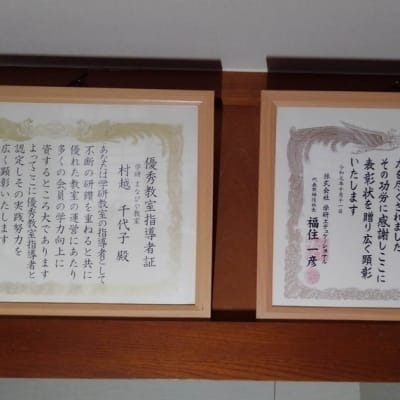 優秀教室指導者証
学研 まなびや教室
村越 千代子 殿
あなたは学研教室の指導者として
不断の研鑽を重ねると共に
優れた教室の運営にあたり
多くの会員の学力向上に
資するところ大であります
よってここに優秀教室指導者と
認定しその実践努力を
広く顕彰いたします
力を尽くされました
その功労に感謝しここに
表彰状を贈り広く顕彰
いたします
株式会社 学研エデュケーショナル
福住 一彦